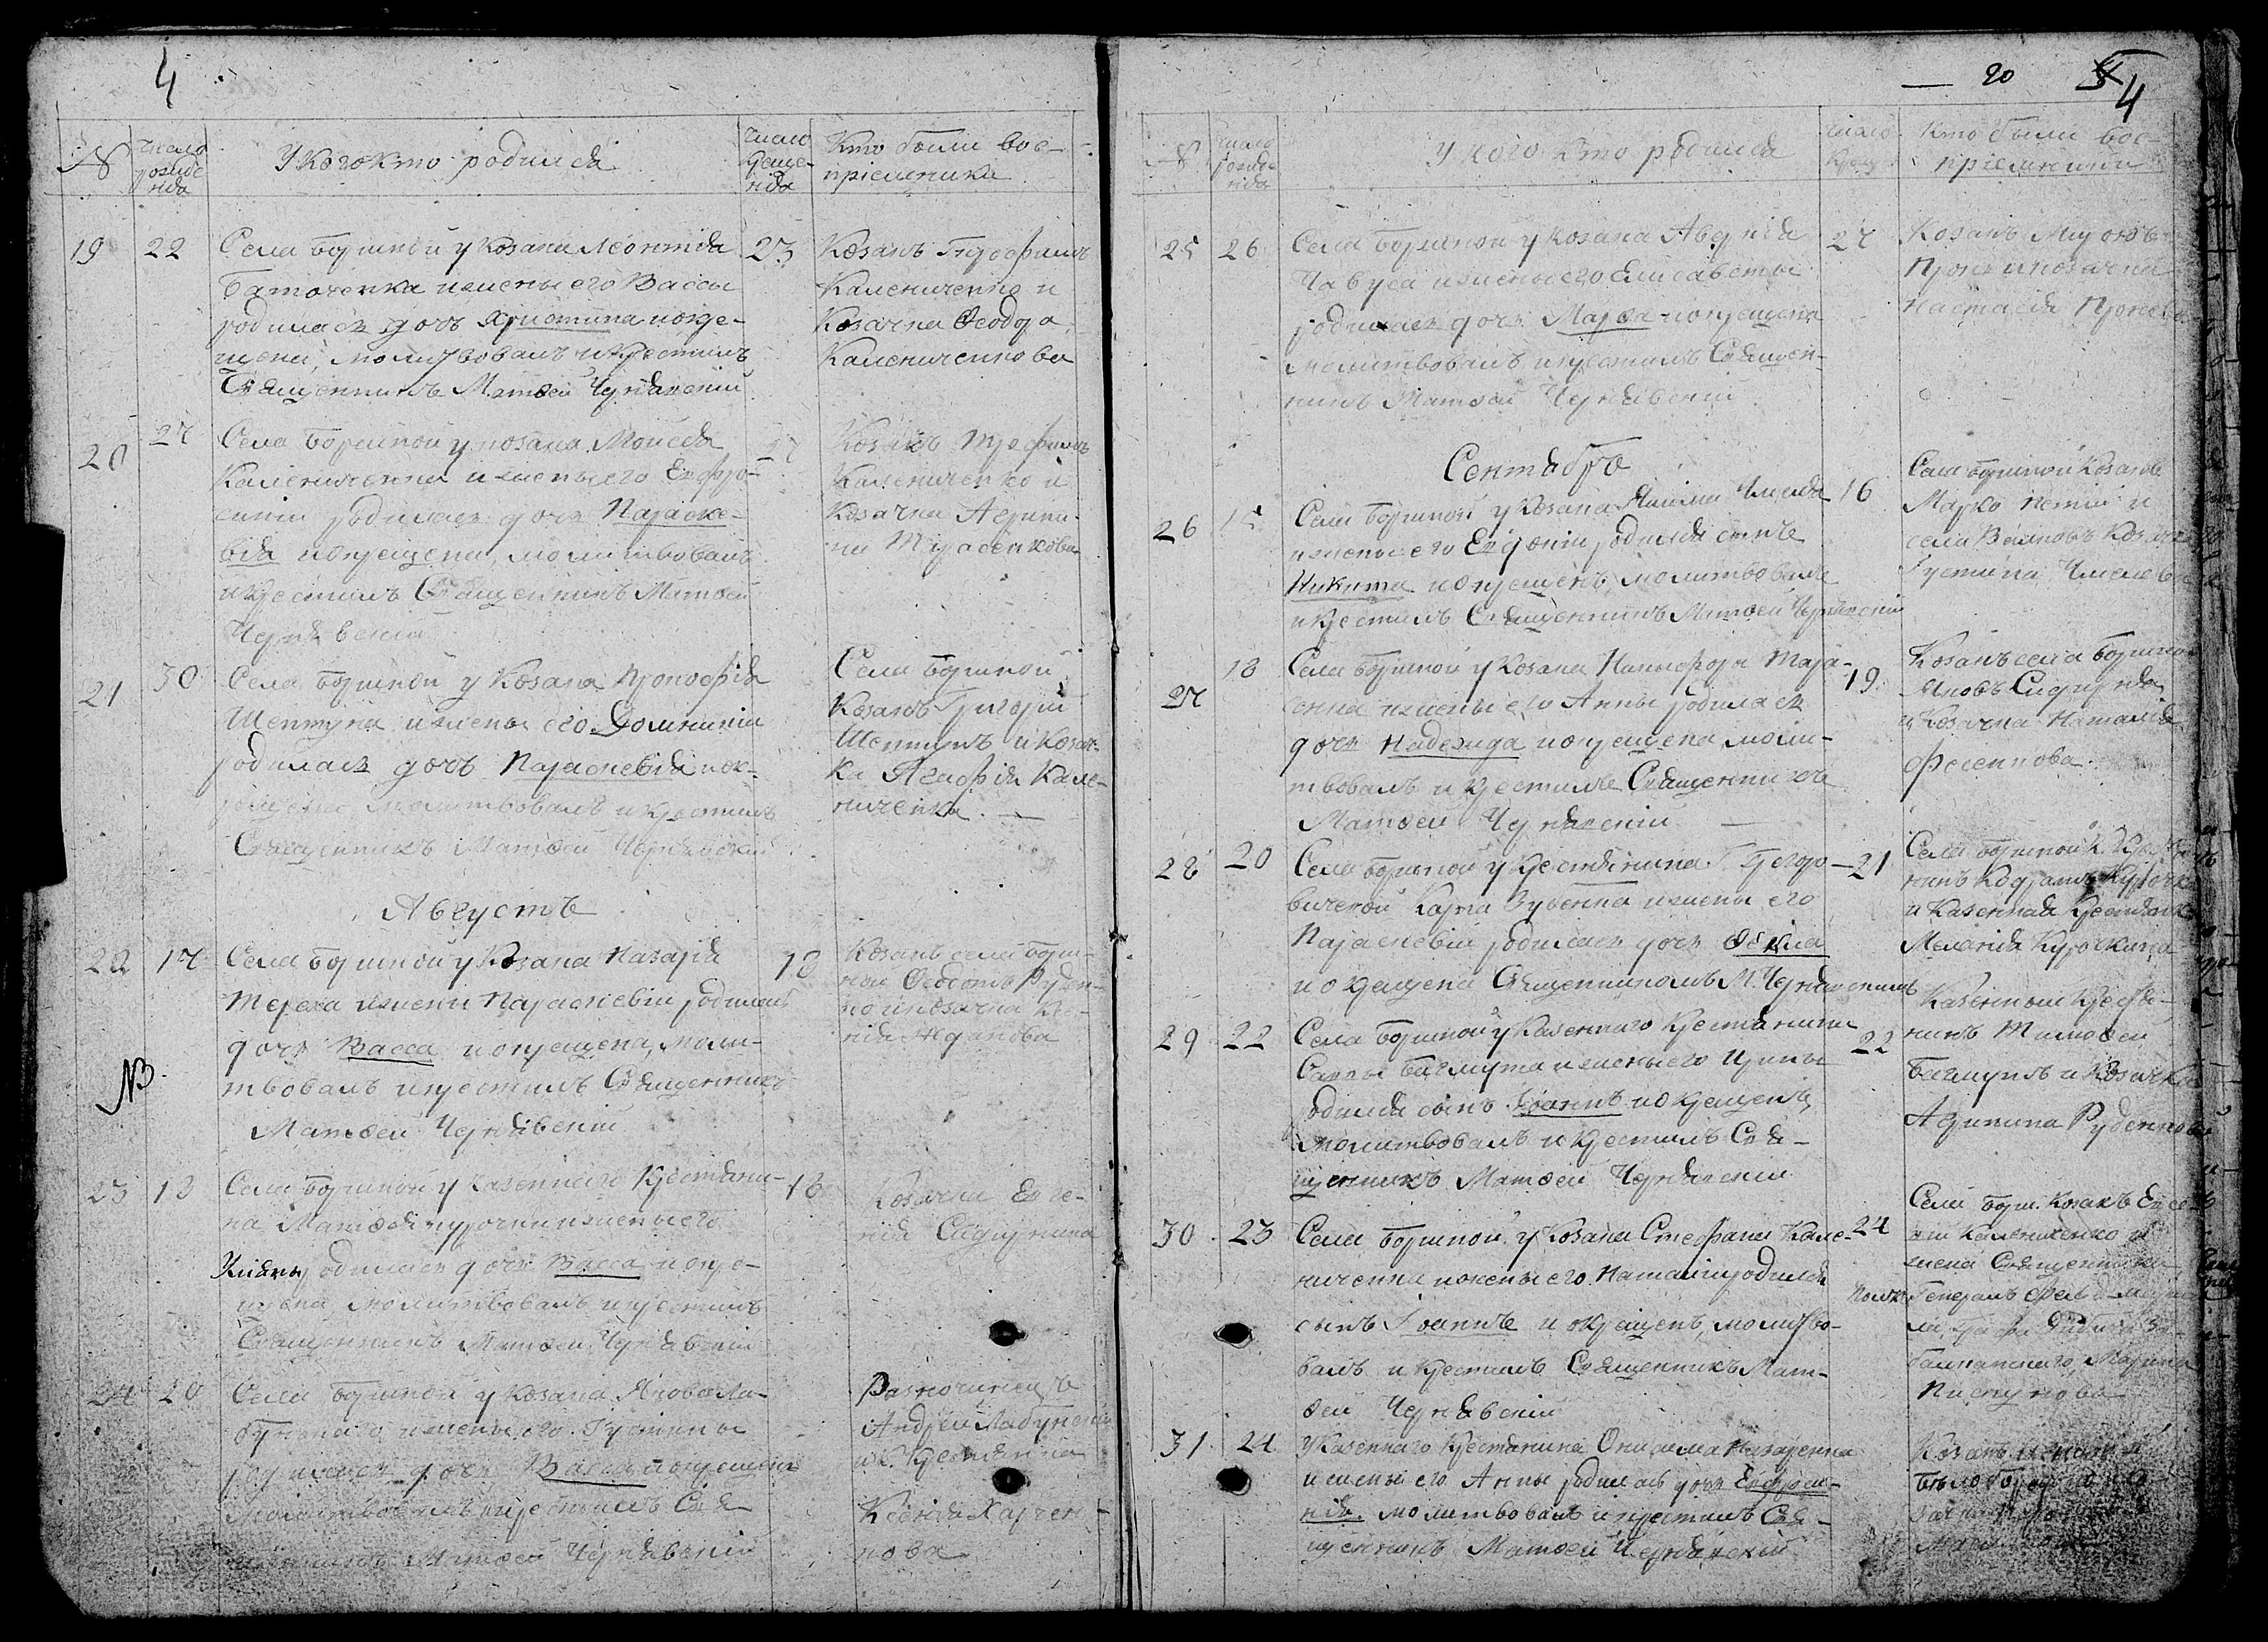 4
№
число рожде-нія
У кого кто родился
число креще-нія
Кто были вос-
пріемники
19 22
Села Боршной у козака Леонтія
Баточенка и жены его Вассы
родилась дочь Христина и окре-
щена, молитвовалъ и крестилъ
Священникъ Матѳей Чернявскій
23
Козакъ
Калениченко и
Козачка Ѳеодора
Калениченкова
20 27
Села Боршной у козака Моисея
Калениченка и жены его Евфро-
синіи родилась дочь Параске-
вія и окрещена, молитвовалъ
и крестилъ Священникъ Матѳей
Чернявскій
27
Козакъ Трофимъ
Калениченко и
Козачка Агрипи-
на Тарасенкова
21 30
Села Боршной у Козака Прокофія
Шептуна и жены его Домникіи
родилась дочь Параскевія и ок-
рещена молитвовалъ и крестилъ
Священникъ Матѳей Чернявскій
Села Боршной
Козакъ Григорій
Шептунъ и Козач-
ка Агафія Кале-
ниченка
Августъ
22 17
Села Боршной у Козака Назарія
Тереха и жены Параскевіи родилась
дочь Васса и окрещена, моли-
твовалъ и крестилъ Священникъ
Матѳей Чернявскій
NB
18
Козакъ села Борш-
ной Ѳеодотъ Руден-
ко и козачка Ксе-
нія Жданова
23 18
Села Боршной у казеннаго Крестьяни-
на Матѳея Курочки и жены его
родилась дочь Васса и окре-
щена, молитвовалъ и крестилъ
Священникъ Матѳей Чернявскій
18
Козачка Евге-
нія
24 20
Села Боршной у козака Якова Ла-
бунскаго и жены его Іустины
родилась дочь Васса и окрещена
молитвовалъ и крестилъ Свя-
щенникъ Матѳей Чернявскій
Разночинецъ
Андрей Лабунскій
и К. Крестьянка
Ксенія Харчен-
кова
20 4
№
число рожде-нія
У кого кто родился
число креще
Кто были вос-
пріемники
25 26
Села Боршной у козака Аверкія
Чавуса и жены его Елисаветы
родилась дочь Марѳа и окрещена
молитвовалъ и крестилъ Священ-
никъ Матѳей Чернявскій
27
Козакъ Миронъ
и козачка
Настасія
Сентябрь
26 15
Села Боршной у Козака
и жены его Евдокіи родился сынъ
Никита и окрещенъ, молитвовалъ
и крестилъ Священникъ Матѳей Чернявскій
16
Села Боршной Козакъ
Марко и
села
Іустина
27 18
Села Боршной у Козака Никифора Тара-
сенка и жены его Анны родилась
дочь Надежда и окрещена, моли-
твовалъ и крестилъ Священникъ
Матѳей Чернявскій
19
Козакъ села Боршной
Яковъ
и Козачка Наталія
28 20
Села Боршной у Крестьянина
Карпа Зубенка и жены его
Параскевіи родилась дочь Ѳекла
и окрещена Священникомъ М. Чернявскимъ
21
Села Боршной
и Казенная Крестьянка
Меланія Курочкина
29 22
Села Боршной у Казеннаго Крестьянина
Саввы Багмута и жены его Ирины
родился сынъ Іоаннъ и окрещенъ,
молитвовалъ и крестилъ Свя-
щенникъ Матѳей Чернявскій
22
Казенной Крестья-
нинъ Тимоѳей
Багмутъ и Козачка
Агрипина Руденкова
30 23
Села Боршной у Козака Стефана Кале-
ниченка и жены его Наталіи родился
сынъ Іоаннъ и окрещенъ, молитво-
валъ и крестилъ Священникъ Мат-
ѳей Чернявскій
24
Села Борш. Козакъ Евсе-
вій Калениченко и
жена Священника
полка
Генералъ Фельдмарша-
ла Графа Дибича За-
балканскаго Марина
31 24
У Казеннаго Крестьянина Онисима Назаренка
и жены его Анны родилась дочь Евфроси-
нія, молитвовалъ и крестилъ Свя-
щенникъ Матѳей Чернявскій
Козакъ